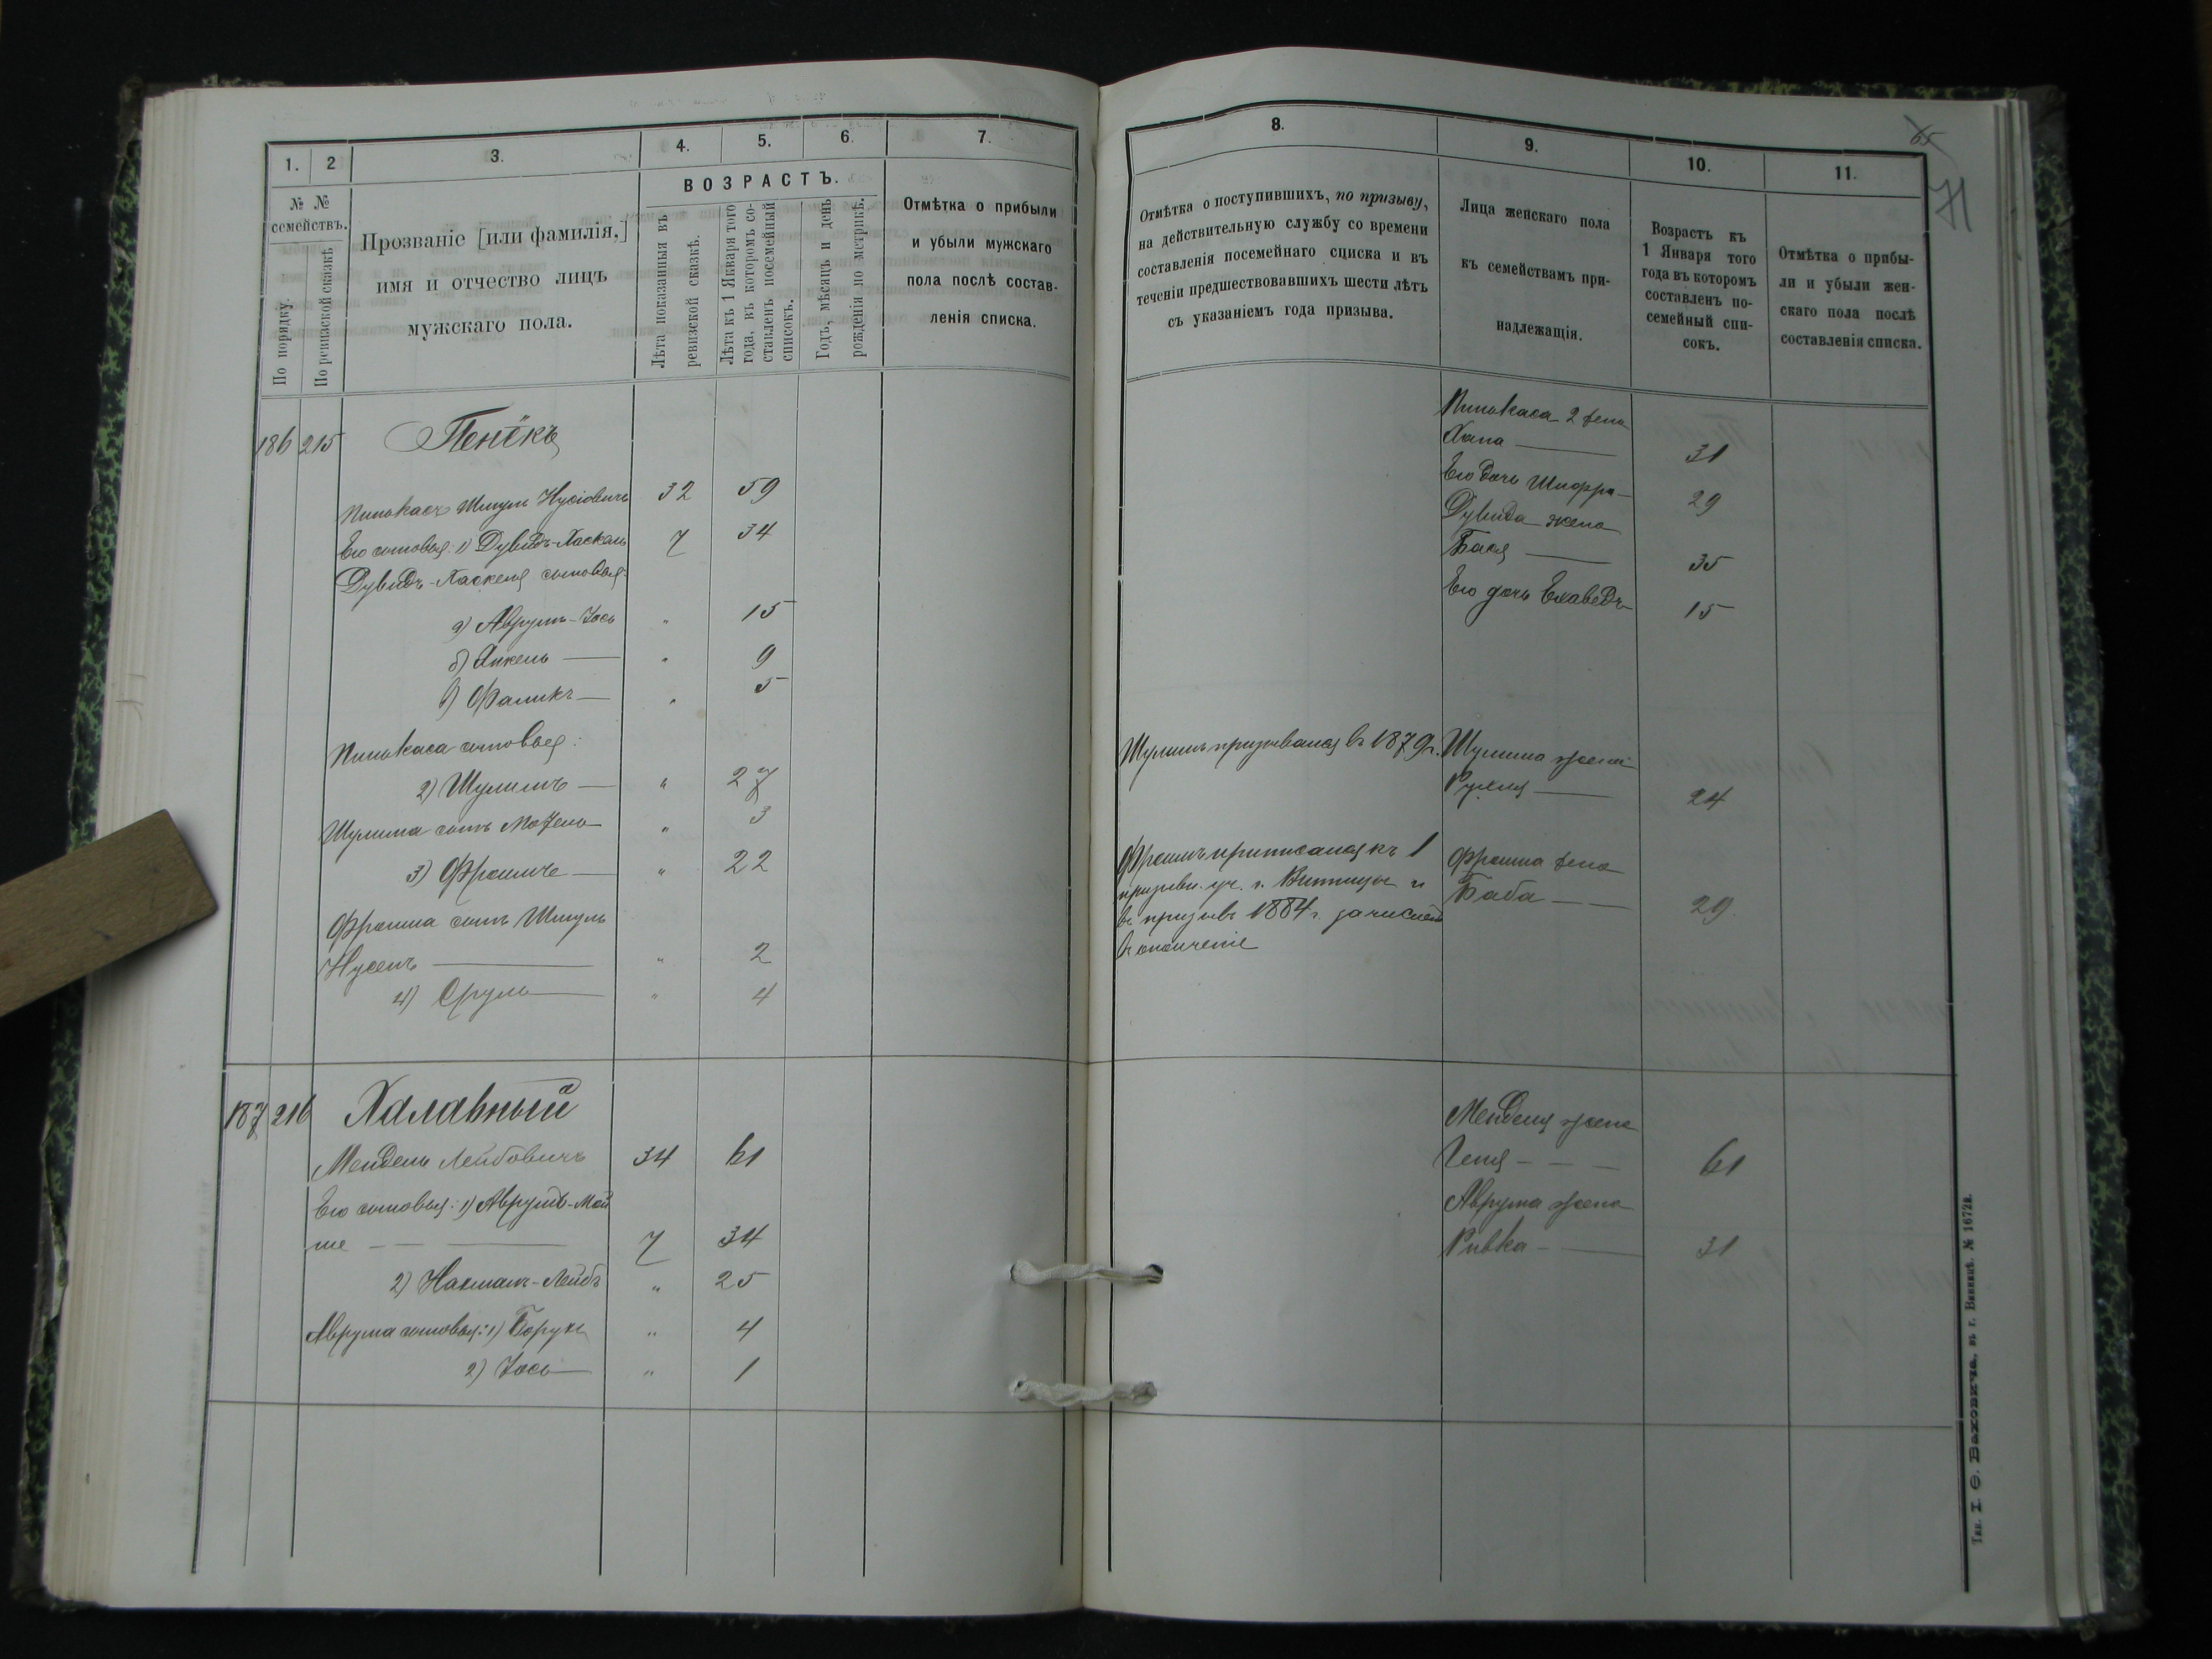 1. 2 3. 4. 5. 6. 7.
№ № семействъ.
По порядку.
По ревизской сказкѣ
Прозваніе [или фамилія,]
имя и отчество лицъ
мужскаго пола.
ВОЗРАСТЪ.
Лѣта показанныя въ
ревизской сказкѣ.
Лѣта къ 1 Января того
года, въ которомъ со-
ставленъ посемейный
списокъ.
Годъ, мѣсяцъ и день
рожденія по метрикѣ.
Отмѣтка о прибыли
и убыли мужскаго
пола послѣ состав-
ленія списка.
186 215 Пенёкъ
Пинькасъ Шмуль Нусіовичъ 32 59
Его сыновья: 1) Дувидъ-Хаскель 7 34
Дувидъ-Хаскеля сыновья:
а) Аврумъ-Іось " 15
б) Янкель — " 9
в) Фаликъ — " 5
Пинькаса сыновья:
2) Шулимъ — " 27
Шулима сынъ Мотель " 3
3) Фроимъ — " 22
Фроима сынъ Шмуль
Нусенъ — " 2
4) Сруль — " 4
187 216 Халавный
Мендель Лейбовичъ 34 61
Его сыновья: 1) Аврумъ-Мой
ше — — 7 34
2) Нахманъ-Лейбъ " 25
Аврума сыновья: 1) Борухъ " 4
2) Іось — " 1
8. 9. 10. 11.
65
71
Отмѣтка о поступившихъ, по призыву,
на дѣйствительную службу со времени
составленія посемейнаго списка и въ
теченіи предшествовавшихъ шести лѣтъ
съ указаніемъ года призыва.
Лица женскаго пола
къ семействамъ при-
надлежащія.
Возрастъ къ
1 Января того
года въ которомъ
составленъ по-
семейный спи-
сокъ.
Отмѣтка о прибы-
ли и убыли жен-
скаго пола послѣ
составленія списка.
Пинькаса 2 жена
Хана — 31
Его дочь Шифра — 29
Дувида жена
Бася — 35
Его дочь Ехаведъ 15
Шулимъ призывался въ 1879 г. Шулима жена
Рухля — 24
Фроимъ приписанъ къ 1 Фроима жена
призывн. уч. г. Винницы и Баба — — 29
въ призывъ 1884 г. зачисленъ
въ ополченіе
Менделя жена
Геня — — — 61
Аврума жена
Ривка — — 31
Тип. І. Ѳ.Ваховича, въ г. Винницѣ. № 1672а.